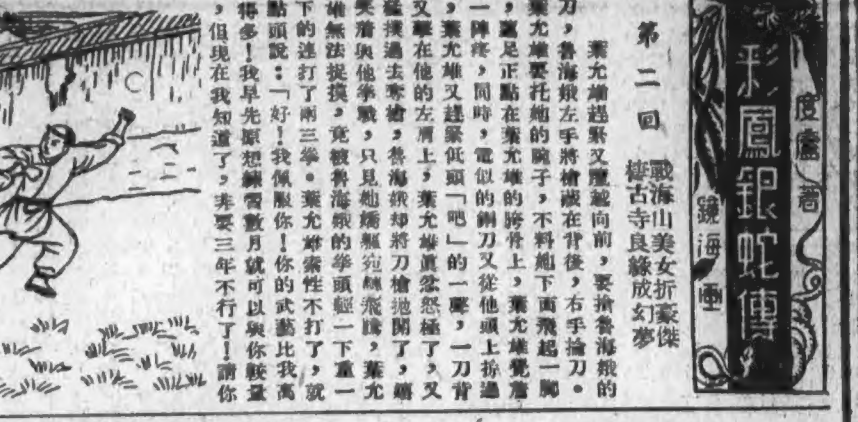 彩鳳銀蛇傳
度廬著
鏡海畫
第二回
戰海山美女折豪傑
棲古寺良緣成幻夢
葉允雄趕緊又躍越向前，要搶魯海娥的
刀，魯海娥左手將槍藏在背後，右手掄刀。
葉允雄要托她的腕子，不料她下面飛起一脚
，蓮足正點在葉允雄的胯骨上，葉允雄覺着
一陣疼，同時，電似的鋼刀又從他頭上掠過
，葉允雄又趕緊低頭「吧」的一聲，一刀背
又擊在他的左肩上，葉允雄眞忿怒極了，又
猛撲過去奪槍，魯海娥却將刀槍抛開了，嬉
笑着與他拳戰，只見她嬌軀宛轉飛騰，葉允
雄無法捉摸，竟被魯海娥的拳頭輕一下重一
下的連打了兩三拳。葉允雄索性不打了，就
點頭說：「好！我佩服你！你的武藝比我高
得多！我早先原想練習數月就可以與你較量
，但現在我知道了，非要三年不行了！請你